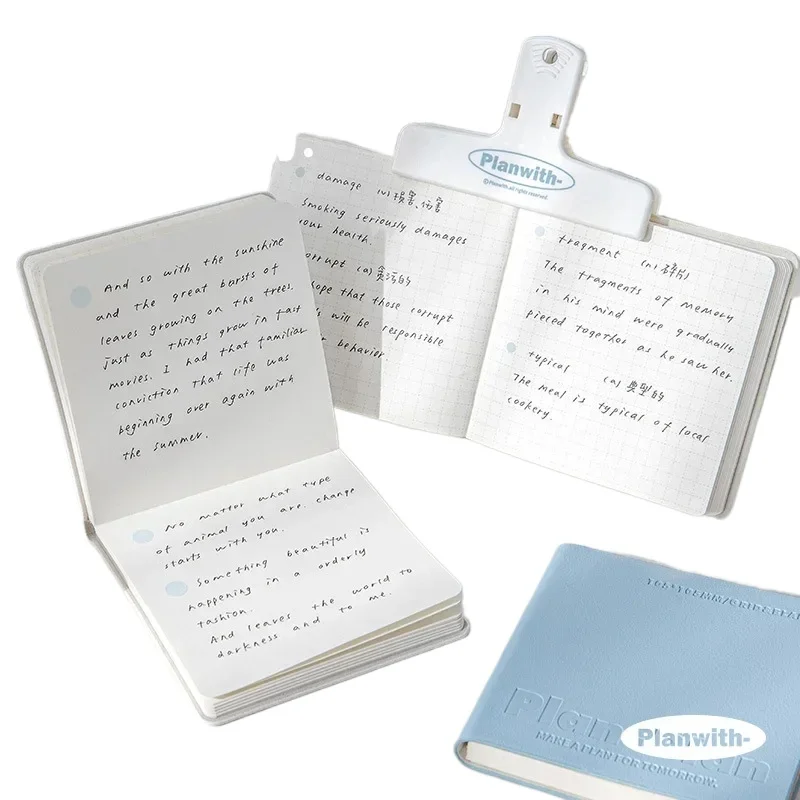 And so with the sunshine
and the great bursts of
leaves growing on the trees.
just as things grow in fast
movies. I had that familiar
conviction that life was
beginning over again with
the summer.
No matter what type
of animal you are. change
starts with you.
Something beautiful is
happening in a orderly
fashion.
And leaves the world to
darkness and to me.
Planwith-
©Planwith all rights reserved.
damage (v) 损害、伤害
Smoking seriously damages
your health.
corrupt (a) 贪污的
hope that those corrupt
will be responsible
behavior.
fragment (n) 碎片
The fragments of memory
in his mind were gradually
pieced together as he saw her.
typical (a) 典型的
The meal is typical of local
cookery.
Plan
Planwith-
MAKE A PLAN FOR TOMORROW.